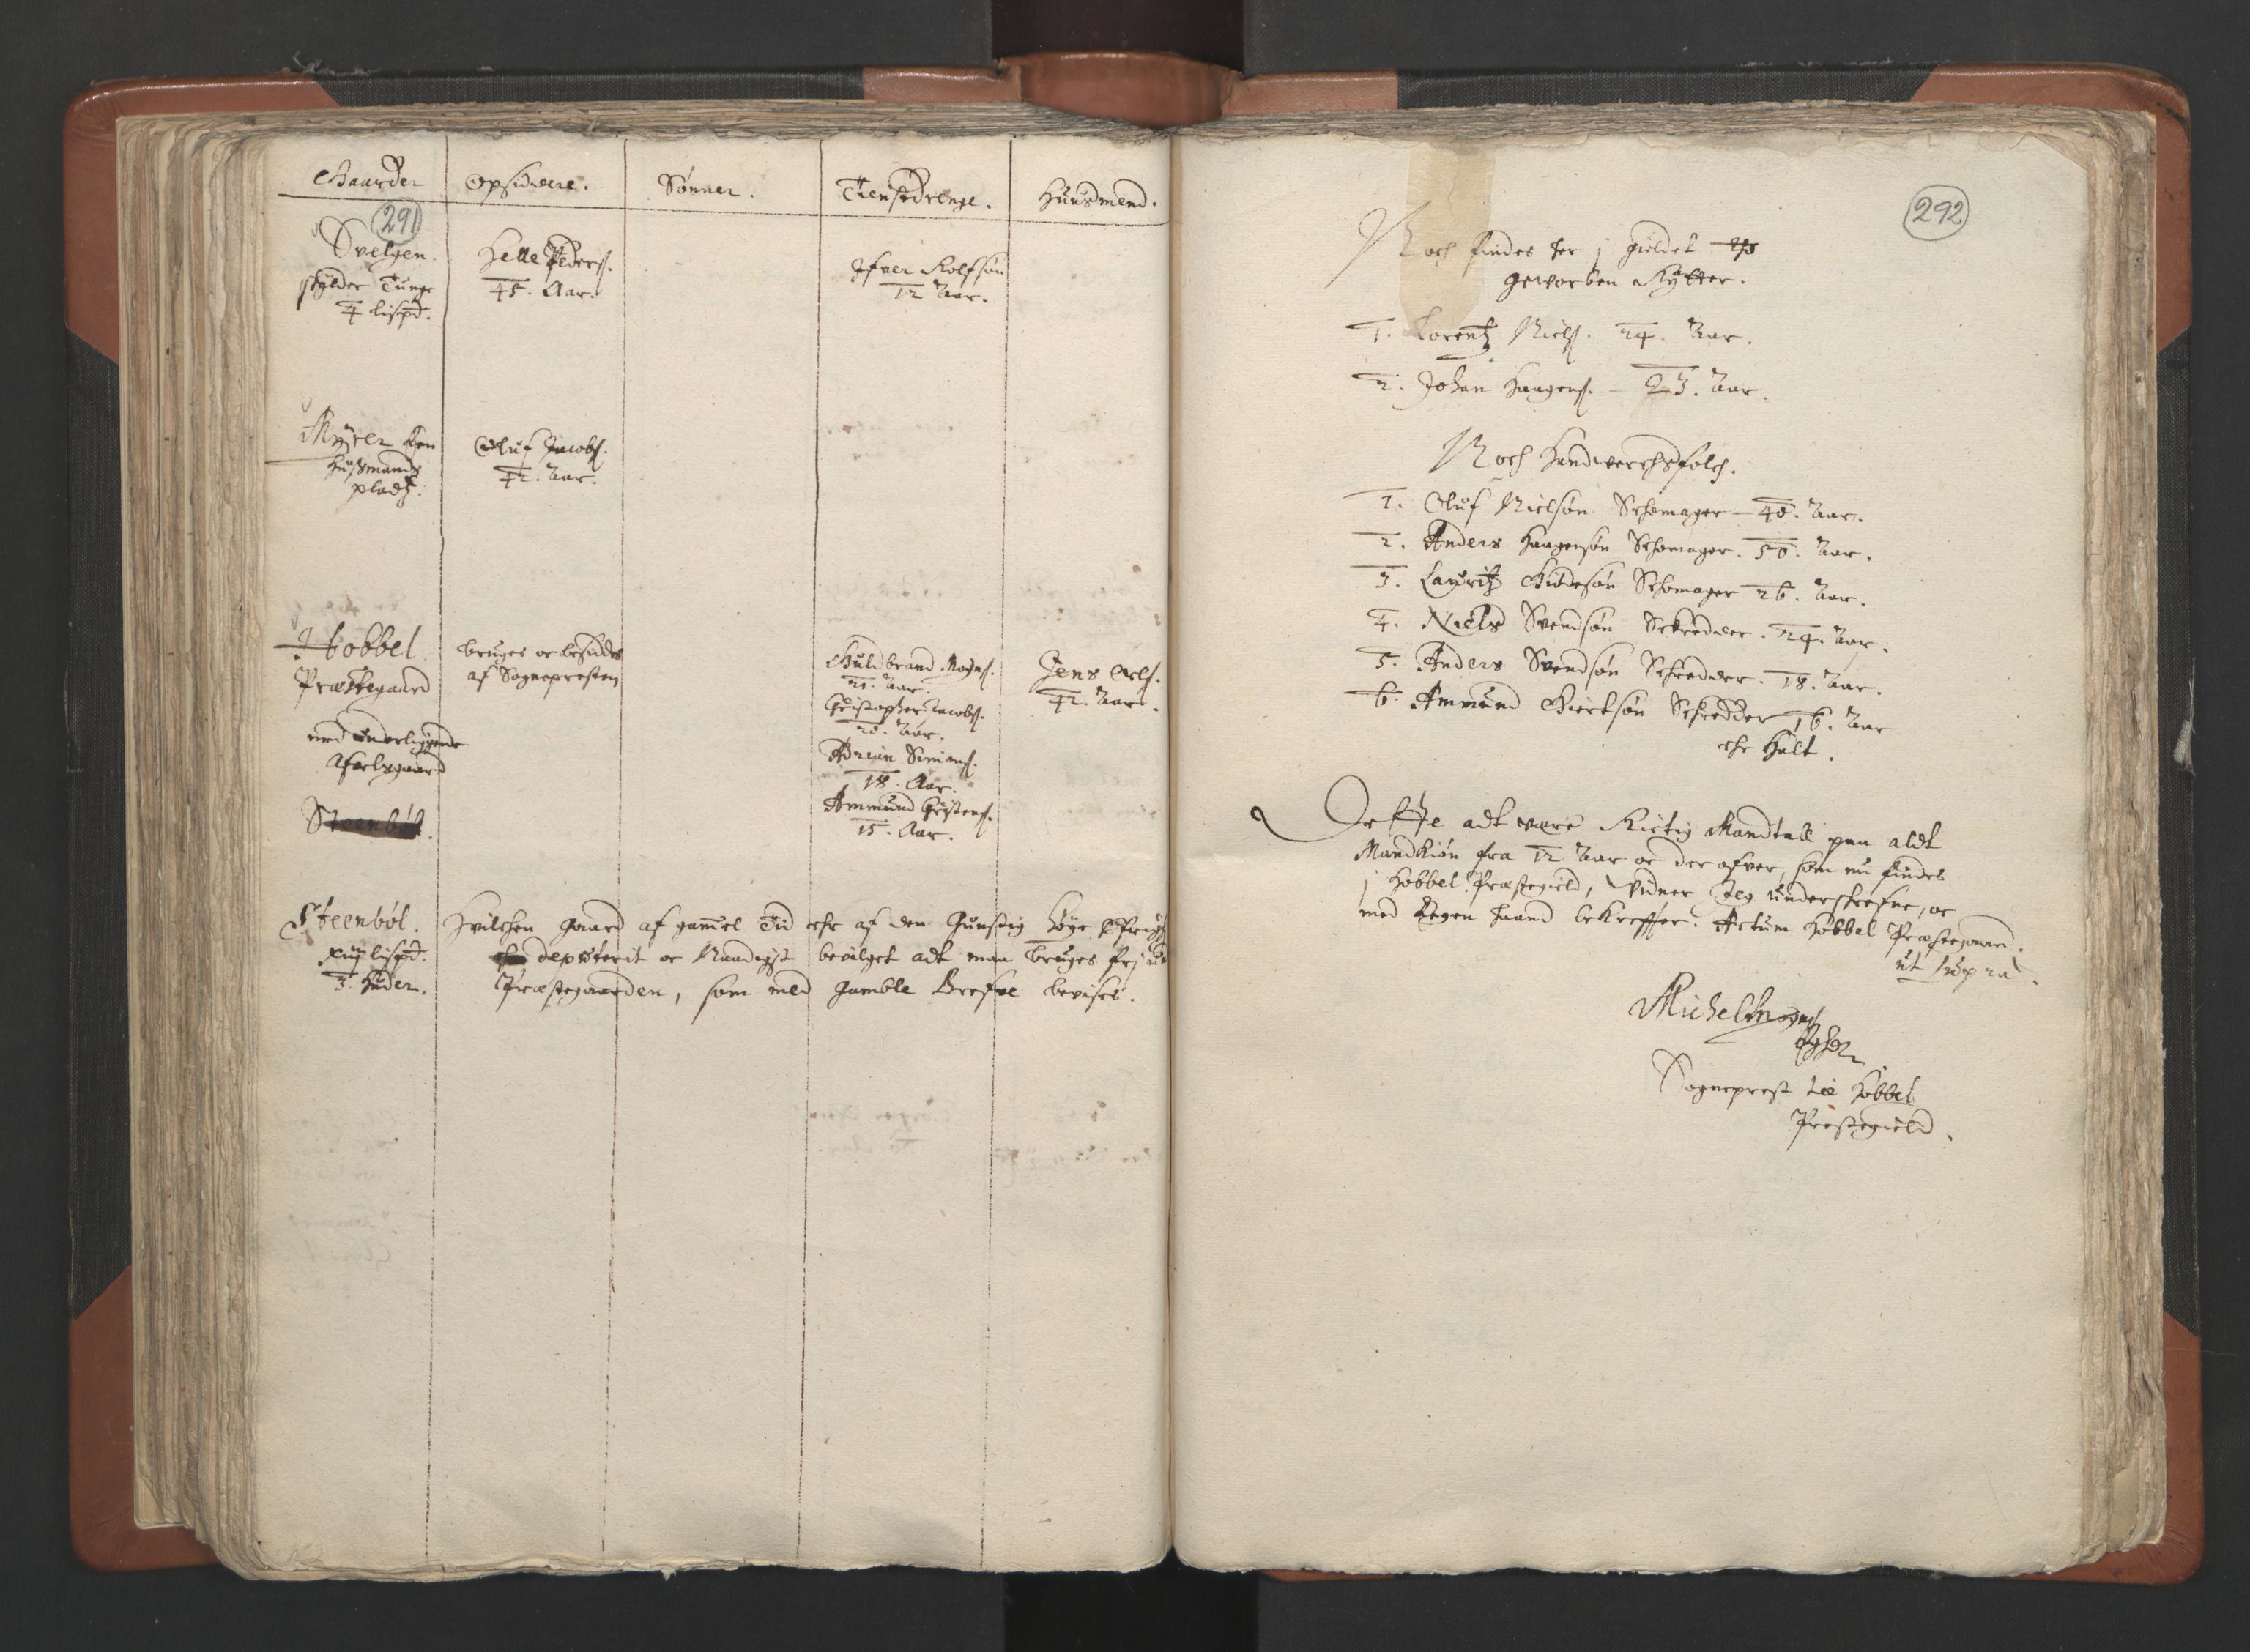 Gaarder
Opsiddere.
Sønner.
Tienstdrenge.
Huusmend.
291
Svelgen.
schylder Tunge
4 lispd.
Helle Peders.
45. Aar.
Ifver Rolfsøn
12 Aar.
Myrer Een
Husmands
pladtz.
Oluf Jacobs.
42. Aar.
Høbbel
Præstegaard
med underliggende
Afvelsgaard
Steenbøl.
bruges oc besiddes
af Sognepresten
Guldbrand Mogns.
21. Aar.
Christopher Jacobs.
20. Aar.
Adrian Simens.
18. Aar.
Ammund Christens.
15. Aar.
Jens Ols.
42. Aar.
Steenbøl.
lispd.
3. Huder.
Hvilchen gaard af gammel Tid ehr af den Gunstig høye Øfrigh
deputerit oc Naadigst bevilget adt maa bruges frj und
Præstegaarden, som med gamble Brefve bevises.
292
Noch findes her j gieldet tho
geworben Rytter.
1. Lorentz Niels. 24. Aar.
2. Johan Haagens. - 23. Aar.
Noch Handverchsfolch.
1. Oluf Nielsøn Schomager - 40. Aar.
2. Anders Haagensøn Schomager. 50. Aar.
3. Lauritz Gudesøn Schomager 26. Aar.
4. Niels Svendsøn Schredder. 24. Aar.
5. Anders Svendsøn Schredder. 18. Aar.
6. Ammund Giertsøn Schredder 16. Aar
ehr Halt.
Dette adt være Richtig Mandtall paa aldt
Mandkiøn fra 12 Aar oc der ofver, som nu findes
j Høbbel Præstegield, Vidner Jeg underschrefne, oc
med Eegen haand bekreffter. Actum Høbbel Præstegaard.
ut supra.
Michel Mogns
Sogneprest till Høbbel
Prestegield.